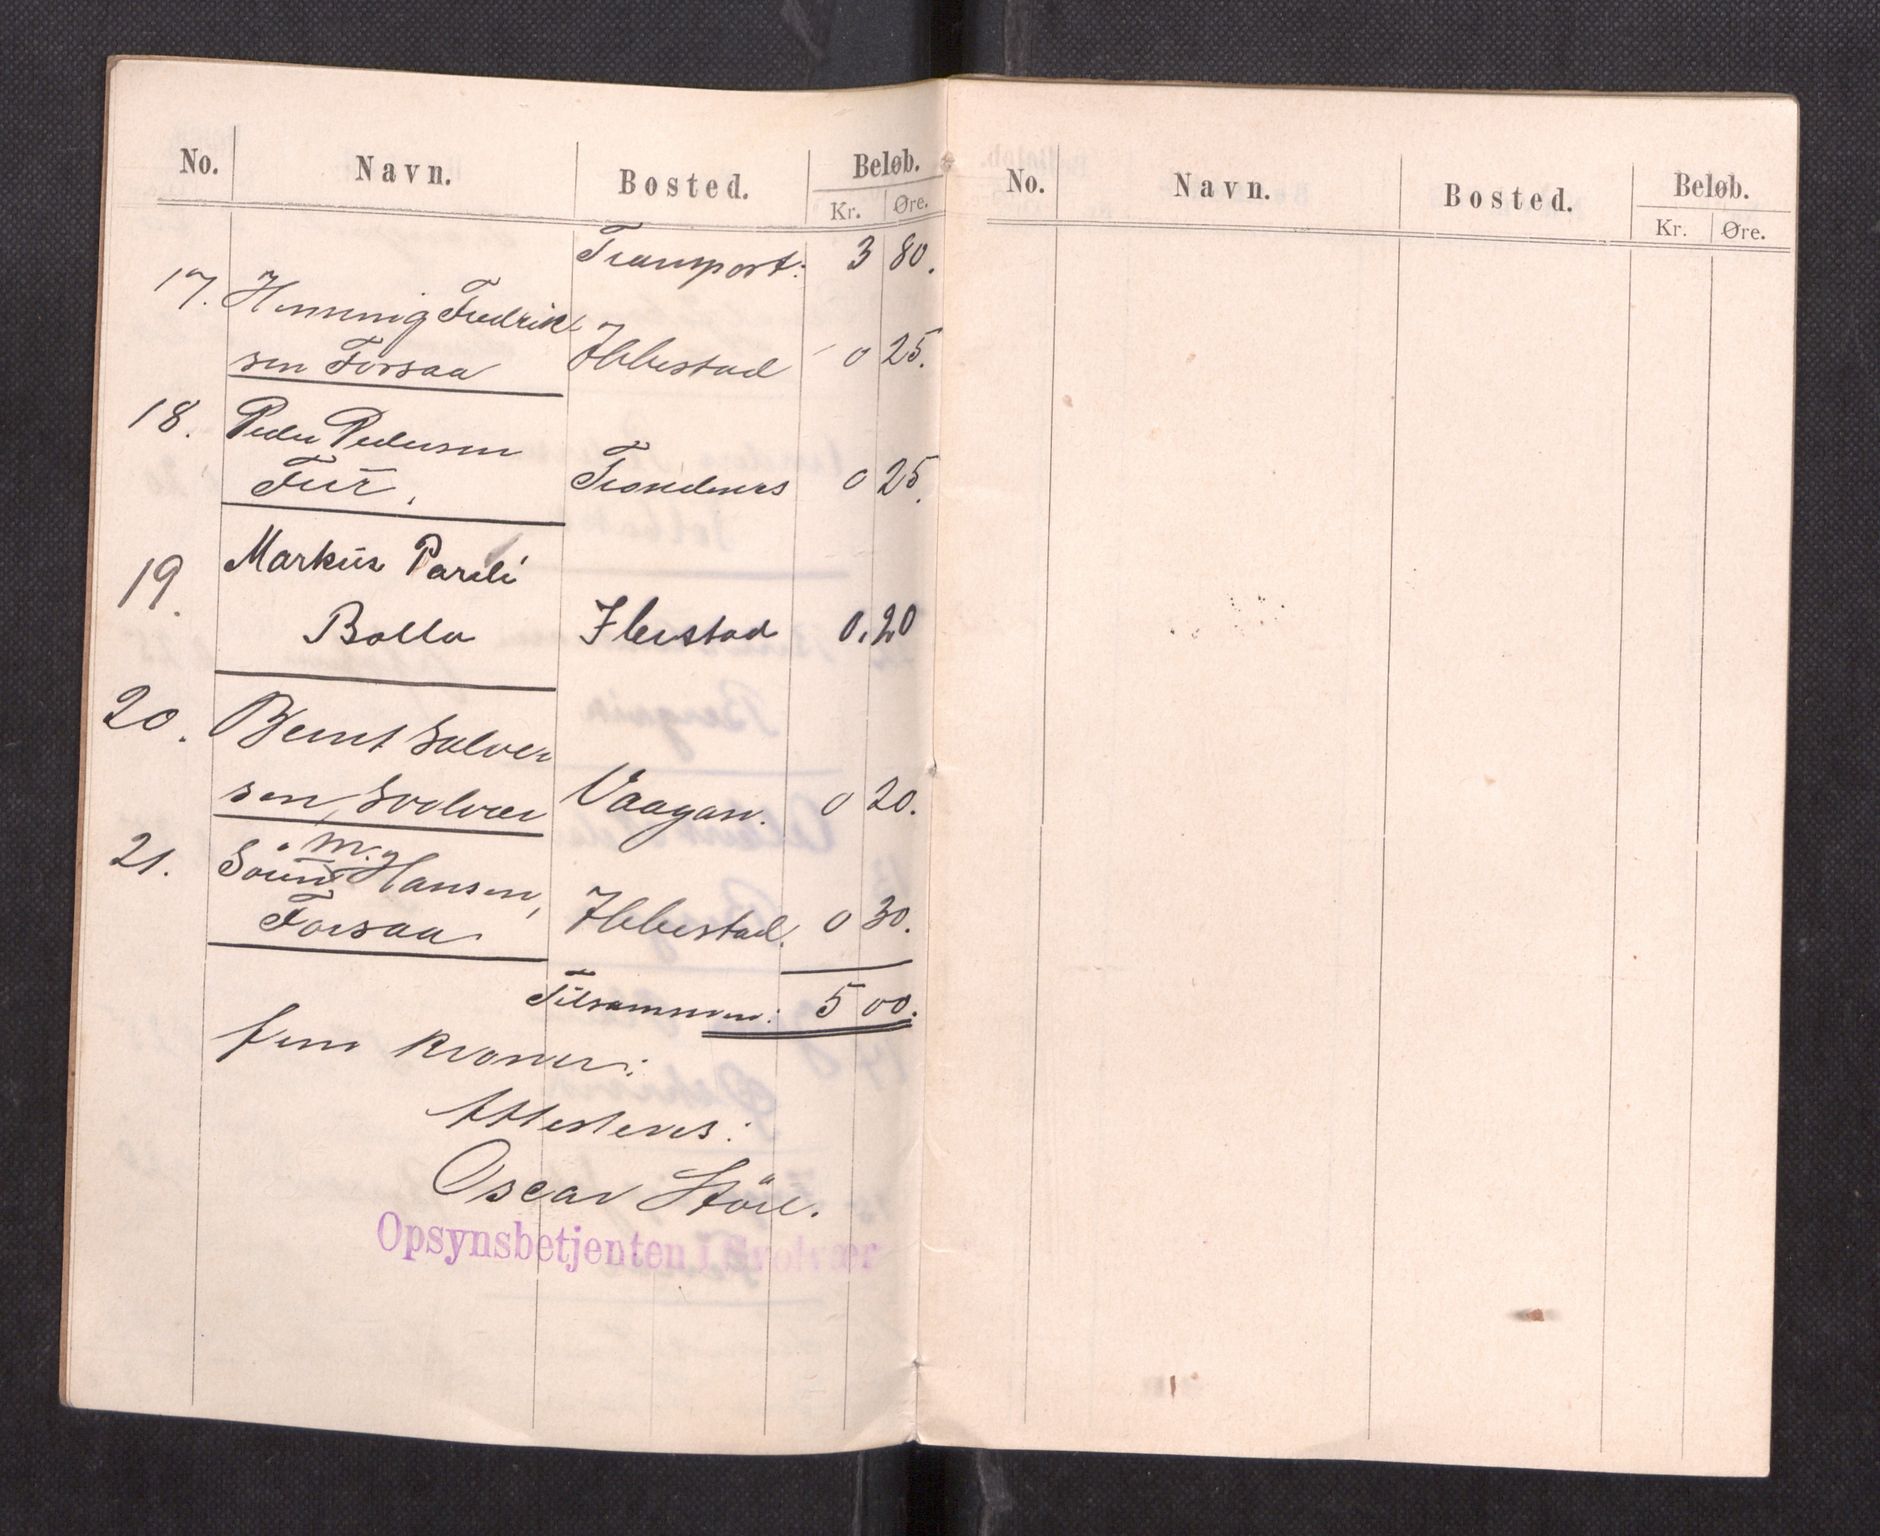 No. Navn. Bosted. Beløb.
Kr. Øre.
Transport: 3 80.
17. Henning Fredrik
sen Forsaa Ibbestad 0 25.
18. Peder Pedersen
Trondenes 0 25.
19. Markus Pareli
Bolla Ibestad 0.20
20. Bernt Salver
sen, Svolvær Vaagan. 0 20.
21. Sören M. Hansen,
Forsaa. Ibbestad. 0 30.
Tilsammen: 5 00.
fem kroner:
Attesteres:
Oscar Störe.
Opsynsbetjenten i Svolvær
No. Navn. Bosted. Beløb.
Kr. Øre.